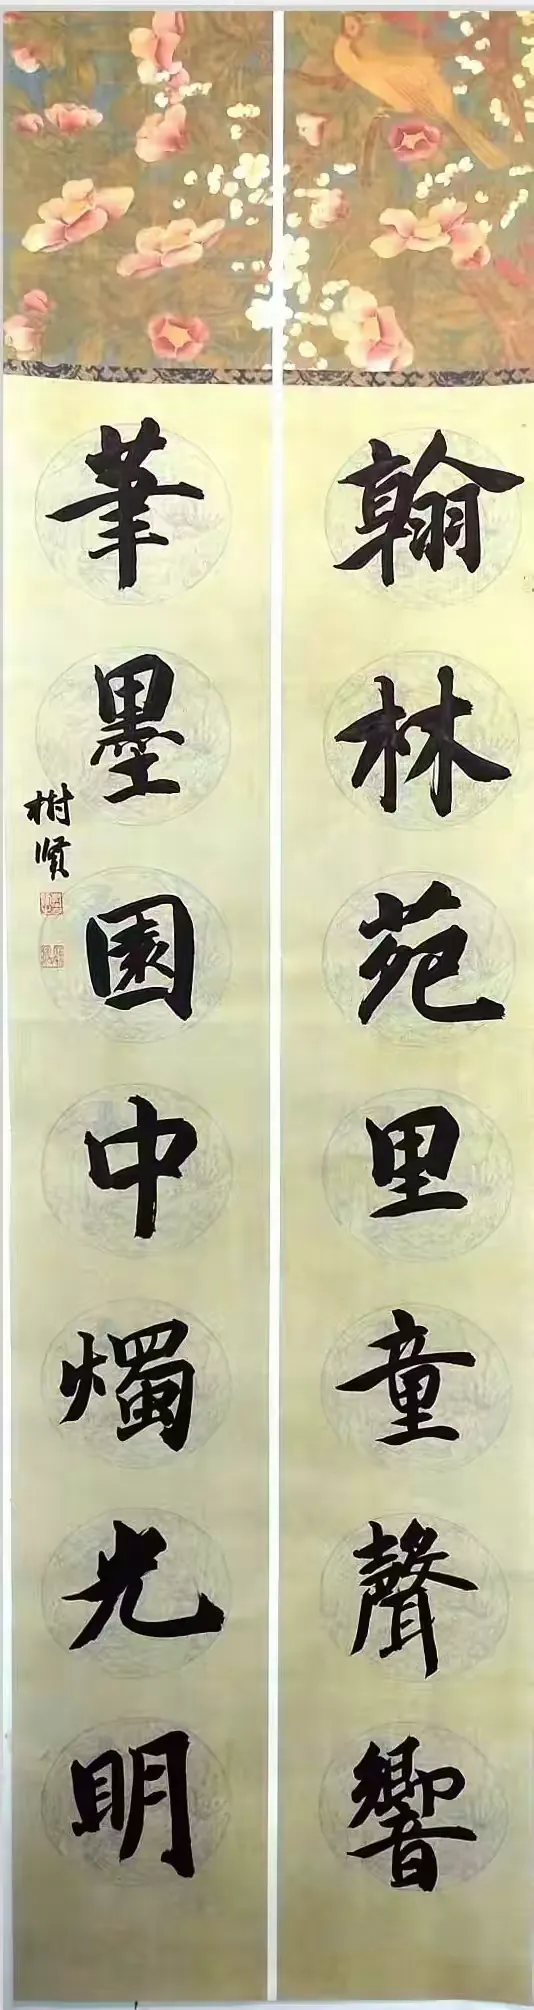 翰林苑里童聲響
筆墨園中燭光明
树贤